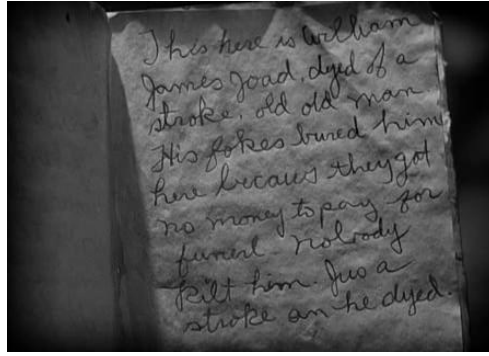 This here is William
James Joad, dyed of a
stroke, old old man
His fokes bured him
here becaus they got
no money to pay for
funerl nobody
kilt him. Jus a
stroke an he dyed.